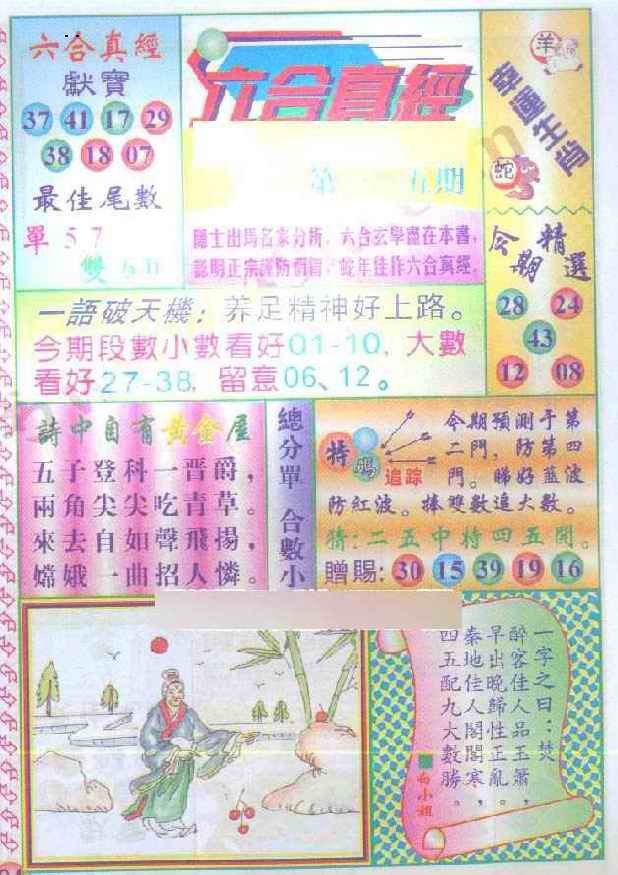 六合真經
獻寶
37 41 17 29
38 18 07
最佳尾數
單 5 7
雙
六合真經
第 五期
隱士出馬名家分析，六合玄學盡在本書，
認明正宗謹防假冒，蛇年佳作六合真經。
羊
幸運生肖
蛇
今期精選
28 24
43
12 08
一語破天機：养足精神好上路。
今期段數小數看好01-10，大數
看好27-38，留意06、12。
詩中自有黄金屋
五子登科一晋爵，
兩角尖尖吃青草。
來去自如聲飛揚，
嫦娥一曲招人憐。
總分單 合數小
特碼
追踪
今期預測于第
二門，防第四
門。睇好藍波
防紅波。捧雙數追大數。
猜：二五中特四五開。
贈賜：30 15 39 19 16
一字之曰：焚
醉客佳人品玉簫，
早出晚歸性正亂。
秦地佳人閣閣寒，
四五配九大數勝。
白小姐